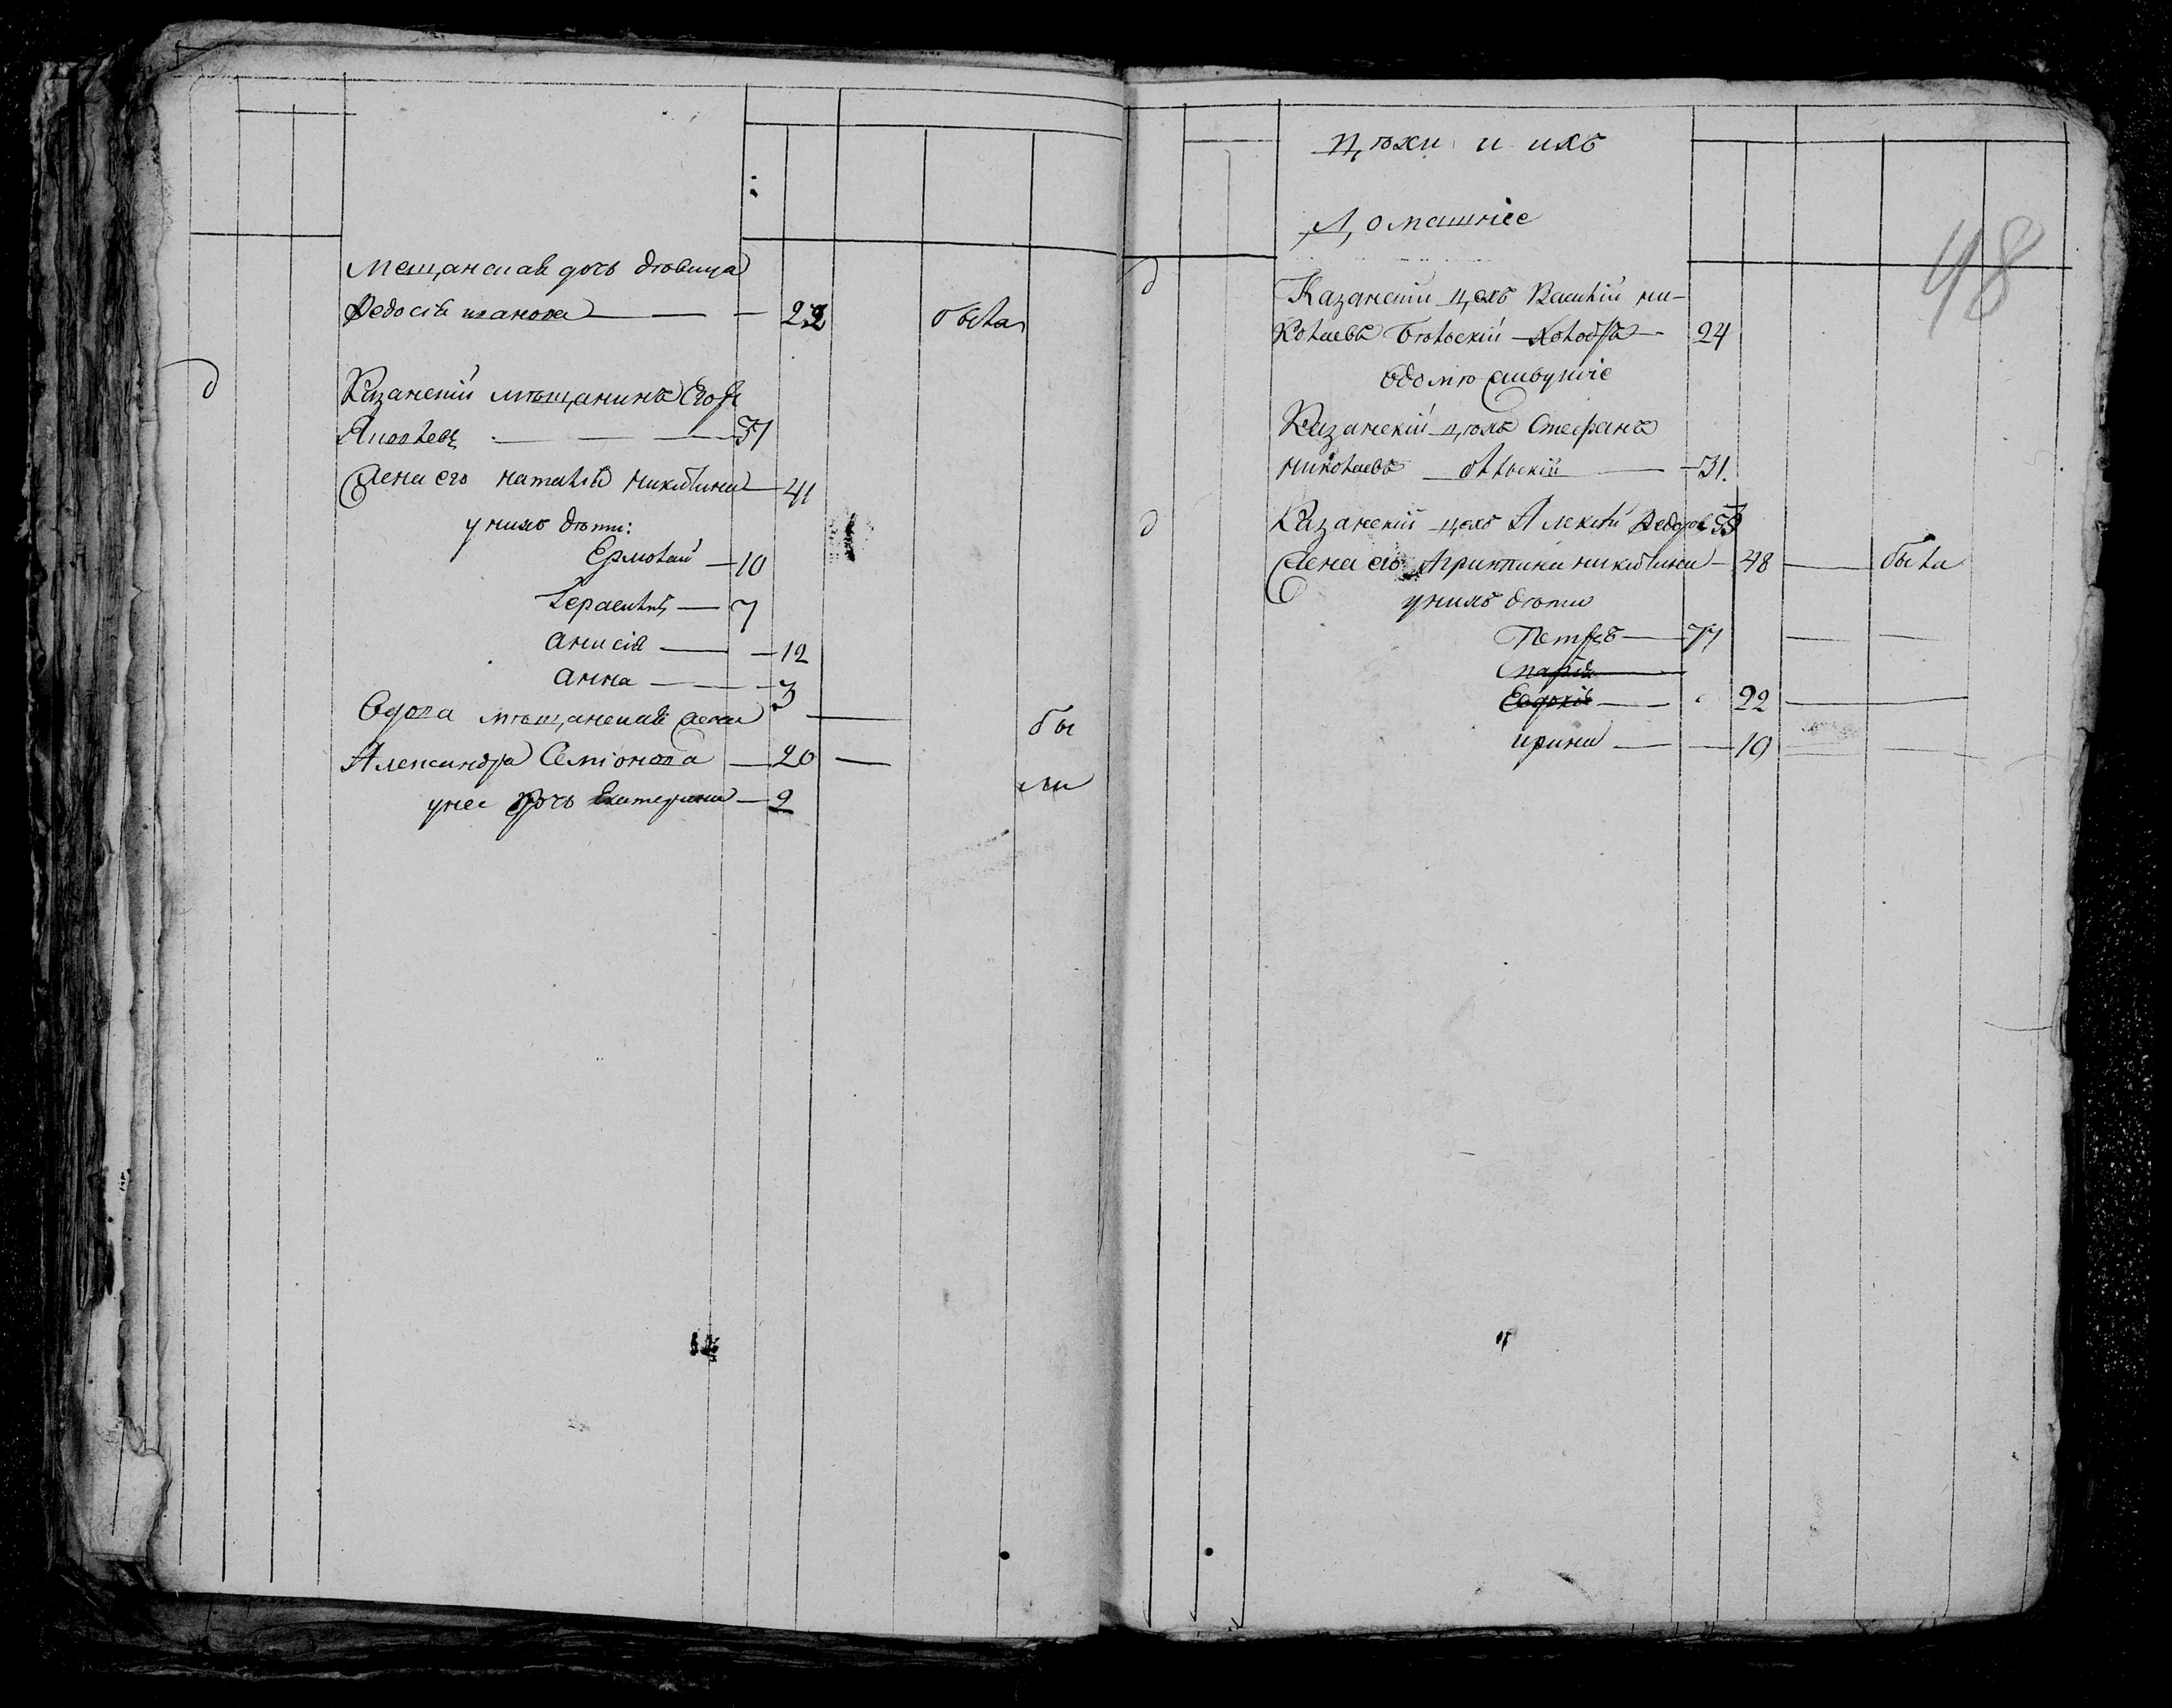 Мещанская дочь дѣвица
Ѳедосія иванова — — 22 была
д
Казанскій мѣщанинъ Егоръ
Яковлевъ — — — 37
Жена его наталія никитина — 41
у нихъ дѣти:
Ермолай — 10
Герасимъ — 7
анисія — — 12
анна — — 3
Вдова мѣщанская жена —
Александра Семіонова — 20 — бы
у нее дочь Екатерина — 2 ли
48
цѣхи и ихъ
Домашніе
д
Казанскій цехъ Василій ни-
колаевъ Бѣльскій Холостъ — 24
вдомѣ живущіе
Казанскій цѣхъ Стефанъ
николаевъ — 31.
д
Казанскій цехъ Алексѣй Ѳедоровъ
Жена его Агрипина никитина — 48 — была
у нихъ дѣти
Петръ — 17 — —
Марія
Евдокія — — 22 —
ирина — — 19 — —